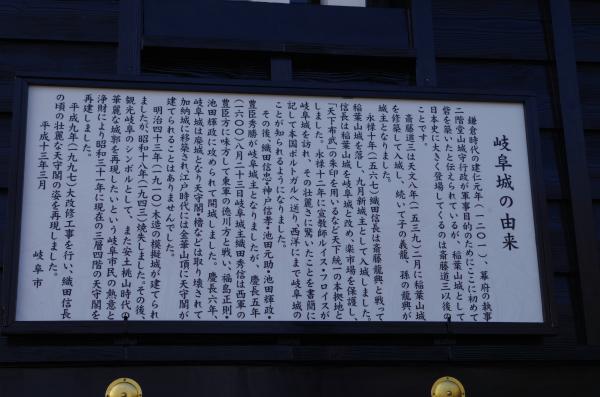 岐阜城の由来
鎌倉時代の建仁元年(一二〇一)、幕府の執事
二階堂山城守行政が軍事目的のためにここに初めて
砦を築いたと伝えられているが、稲葉山城として
日本史に大きく登場してくるのは斎藤道三以後の
ことです。
斎藤道三は天文八年(一五三九)二月に稲葉山城
を修築して入城し、続いて子の義龍、孫の龍興が
城主となりました。
永禄十年(一五六七)織田信長は斎藤龍興と戦って
稲葉山城を落し、九月新城主として入城しました。
信長は稲葉山城を岐阜城と改め、楽市場を保護し、
「天下布武」の朱印を用いるなど天下統一の本拠地と
しました。永禄十二年、宣教師ルイス・フロイスが
岐阜城を訪れ、その壮麗さに驚いたことを書簡に
記して本国ポルトガルへ送り、西洋にまで岐阜城の
ことが知られるようになりました。
その後、織田信忠・神戸信孝・池田元助・池田輝政・
豊臣秀勝が岐阜城主となりましたが、慶長五年
(一六〇〇)八月二十三日岐阜城主織田秀信は西軍の
豊臣方に味方して東軍の徳川方と戦い、福島正則・
池田輝政に攻められて開城しました。慶長六年、
岐阜城は廃城となり天守閣・櫓などは取り壊されて
加納城に移築され、江戸時代には金華山頂に天守閣が
建てられることはありませんでした。
明治四十三年(一九一〇)木造の模擬城が建てられ
ましたが、昭和十八年(一九四三)焼失しました。その後、
観光岐阜のシンボルとして、また安土桃山時代の
華麗な城郭を再現したいという岐阜市民の熱意と
浄財により昭和三十一年に現在の三層四階の天守閣を
再建しました。
平成九年(一九九七)大改修工事を行い、織田信長
の頃の壮麗な天守閣の姿を再現しました。
平成十三年三月
岐阜市